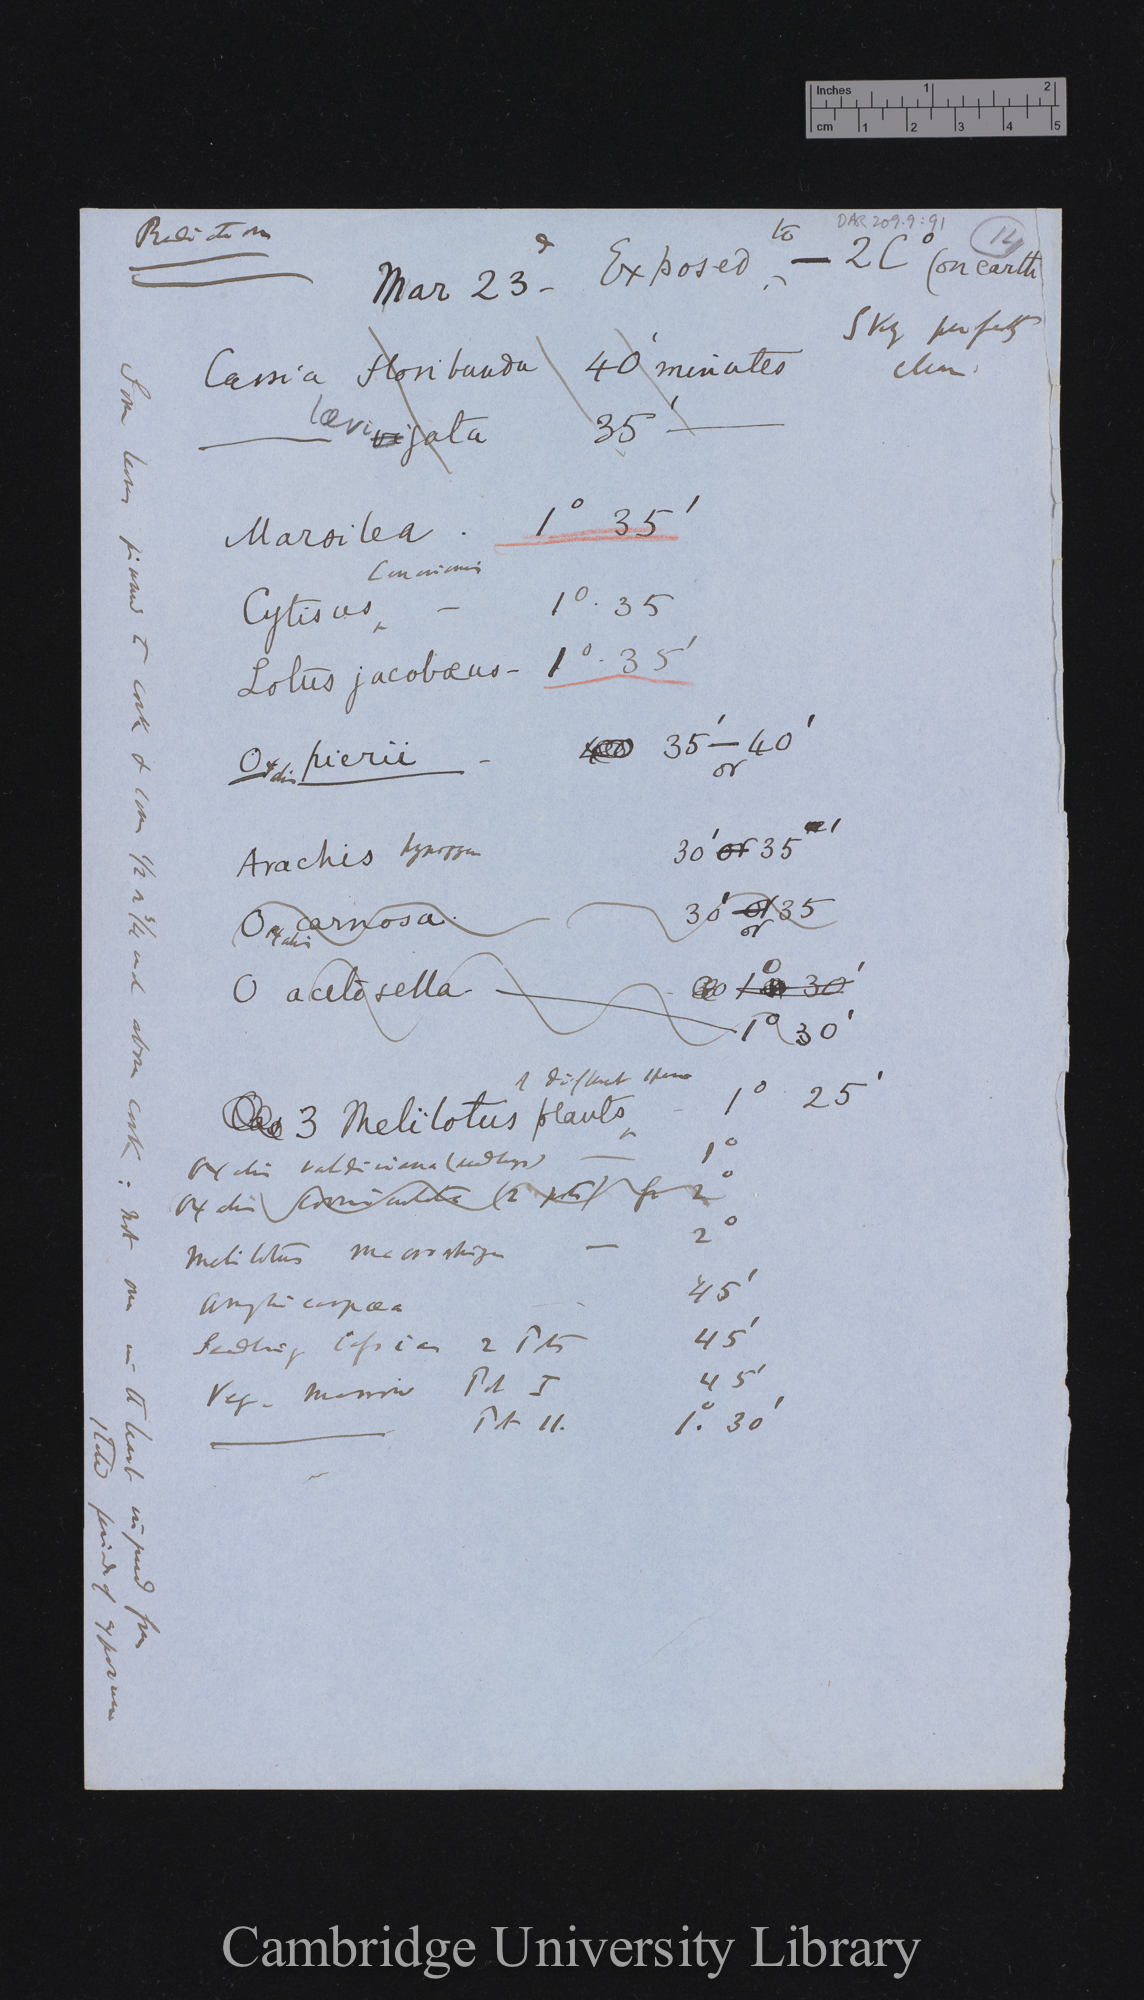 Inches 1 2
cm 1 2 3 4 5
DAR 209.9:91
14
Radiation
Mar 23d - Exposed to — 2 C° (on earth
Sky perfectly
clear.
Cassia floribunda 40' minutes
——— lævigata 35' ———
Marsilea . 1° 35'
Cytisus Canariensis — 1°. 35
Lotus jacobæus - 1°. 35'
Oxalis pierii - 35'— or 40'
Arachis hypogæa 30' or 35'
Oxalis carnosa. 30' or 35
O acetosella 1° 30'
1° 30'
3 Melilotus plants of different — 1° 25'
Oxalis valdiviana (seedlings) — 1°
Oxalis corniculata (2 pots) for 2°
Melilotus macrorhiza — 2°
Amphicarpæa 45'
Seedling Cassias 2 Pots 45'
Veg. Marrow Pot I 45'
——— Pot II. 1°. 30'
Some leaves pinned to cork & some 1/2 to 3/4 inch above cork: not one in the least injured from
stated periods of exposure
Cambridge University Library